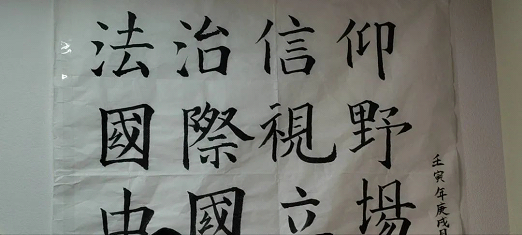 法治信仰
國際視野
中國立場
壬寅年庚戌